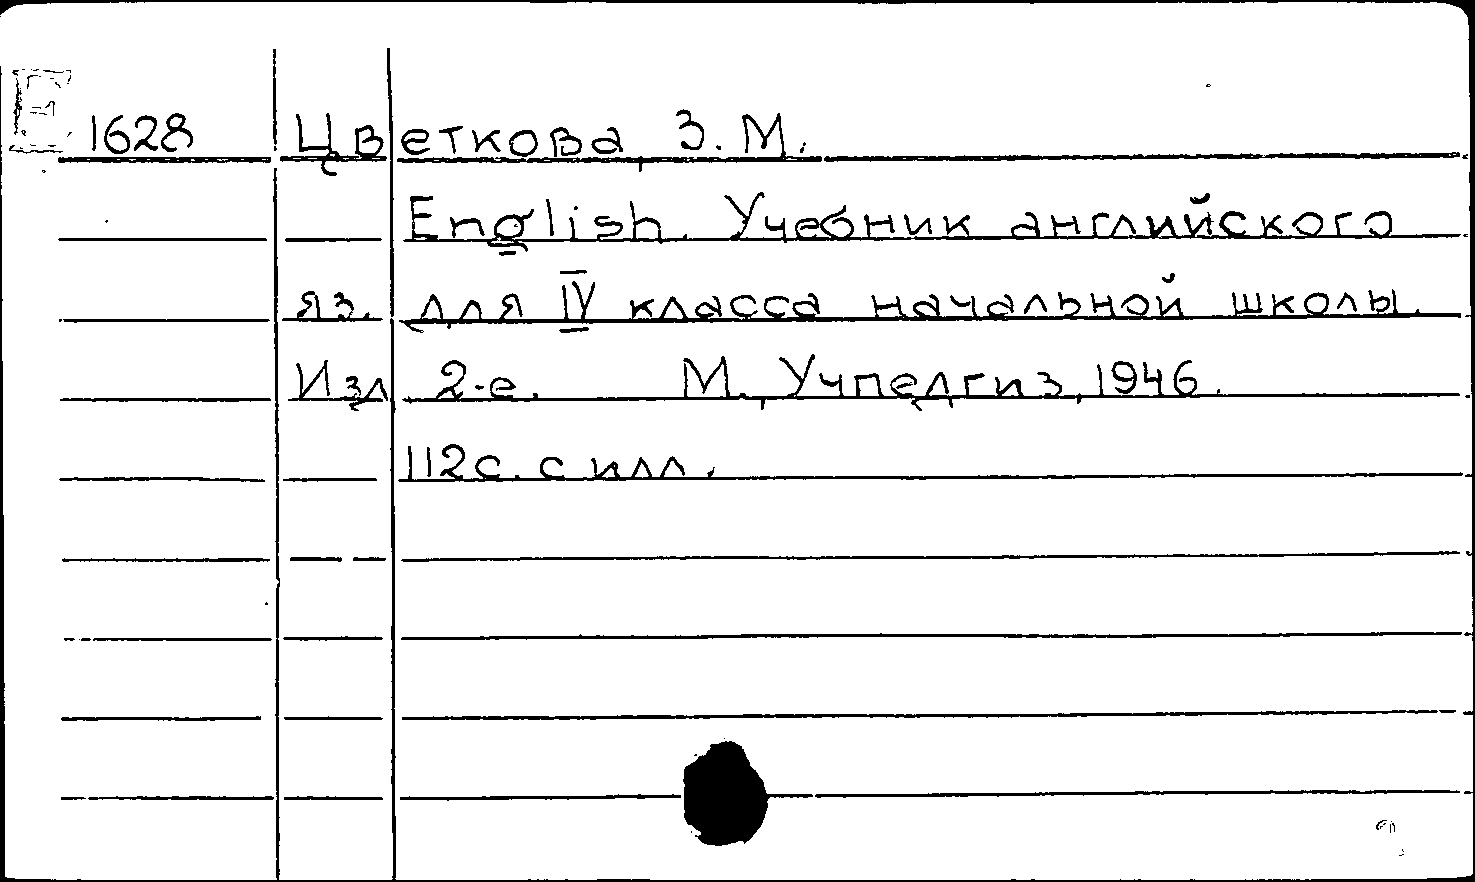 E 1628 Цветкова, З. М.
English. Учебник английского
яз. для IV класса начальной школы.
Изд 2-е. М., Учпедгиз, 1946.
112с. с илл.